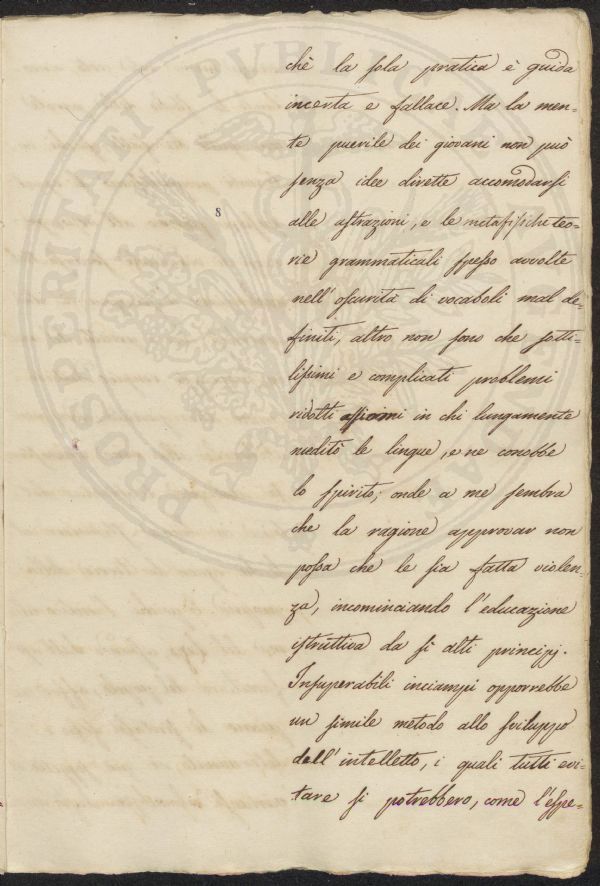 PROSPERITATI PVBLICAE
8
chè la sola pratica è guida
incerta e fallace. Ma la men-
te puerile dei giovani non può
senza idee dirette accomodarsi
alle astrazioni, e le metafisiche teo-
rie grammaticali spesso avvolte
nell'oscurità di vocaboli mal de-
finiti, altro non sono che sotti-
lissimi e complicati problemi
ridotti assiomi in chi lungamente
meditò le lingue, e ne conobbe
lo spirito; onde a me sembra
che la ragione approvar non
possa che le sia fatta violen-
za, incominciando l'educazione
istruttiva da sì alti principj.
Insuperabili inciampi opporrebbe
un simile metodo allo sviluppo
dell'intelletto, i quali tutti evi-
tare si potrebbero, come l'espe-